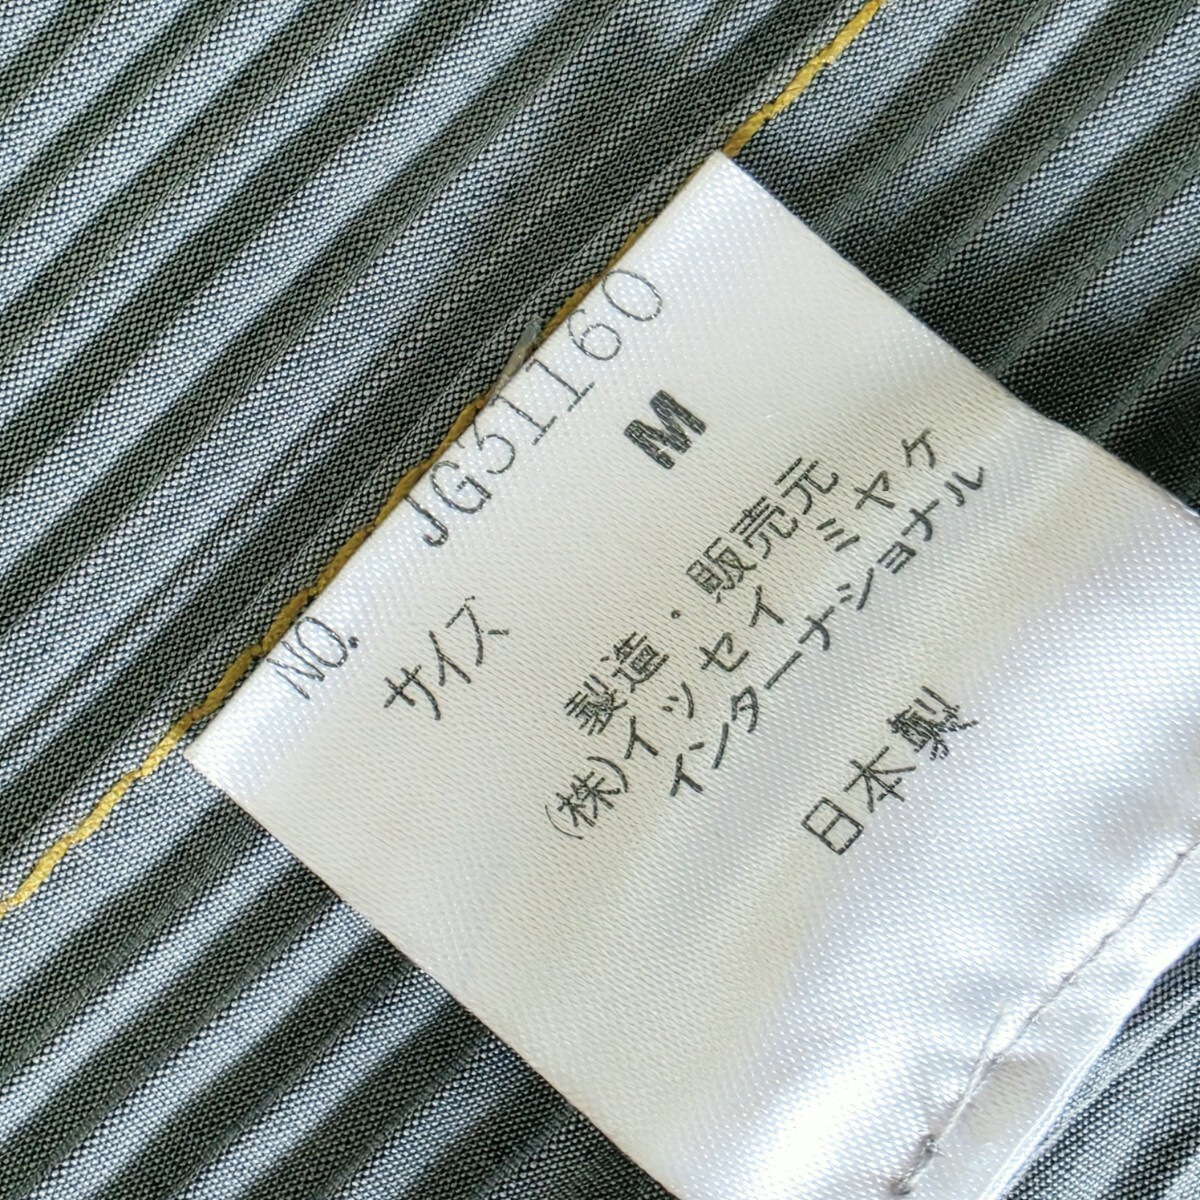 NO. JG31160
サイズ M
製造・販売元
(株)イッセイ ミヤケ
インターナショナル
日本製